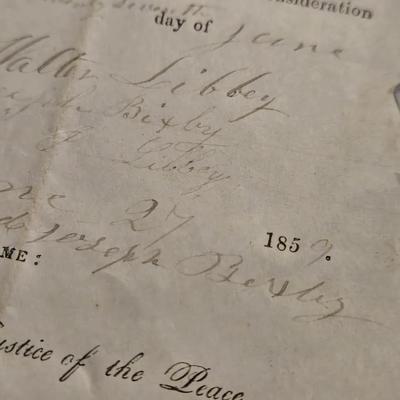 seventh consideration
day of June
Walter Libbey
Joseph Bixby
Libbey
June 27 1859.
Joseph Bixby
ME:
Justice of the Peace